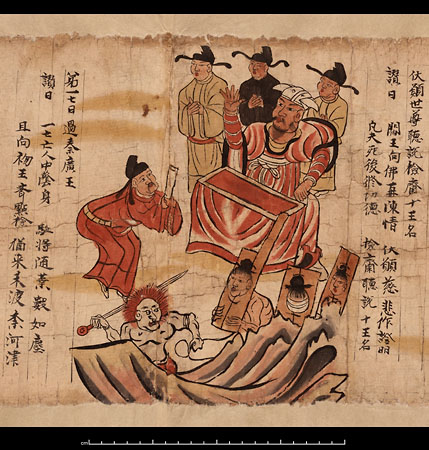 伏願世尊聽說檢齋十王名
讚曰 閻王向佛再陳情 伏願慈悲作證明
凡夫死後修功德 檢齋聽說十王名
第一七日過秦廣王
讚曰
一七亡人中陰身 駈將隨業數如塵
且向初王齊點檢 來未渡 河津
cm